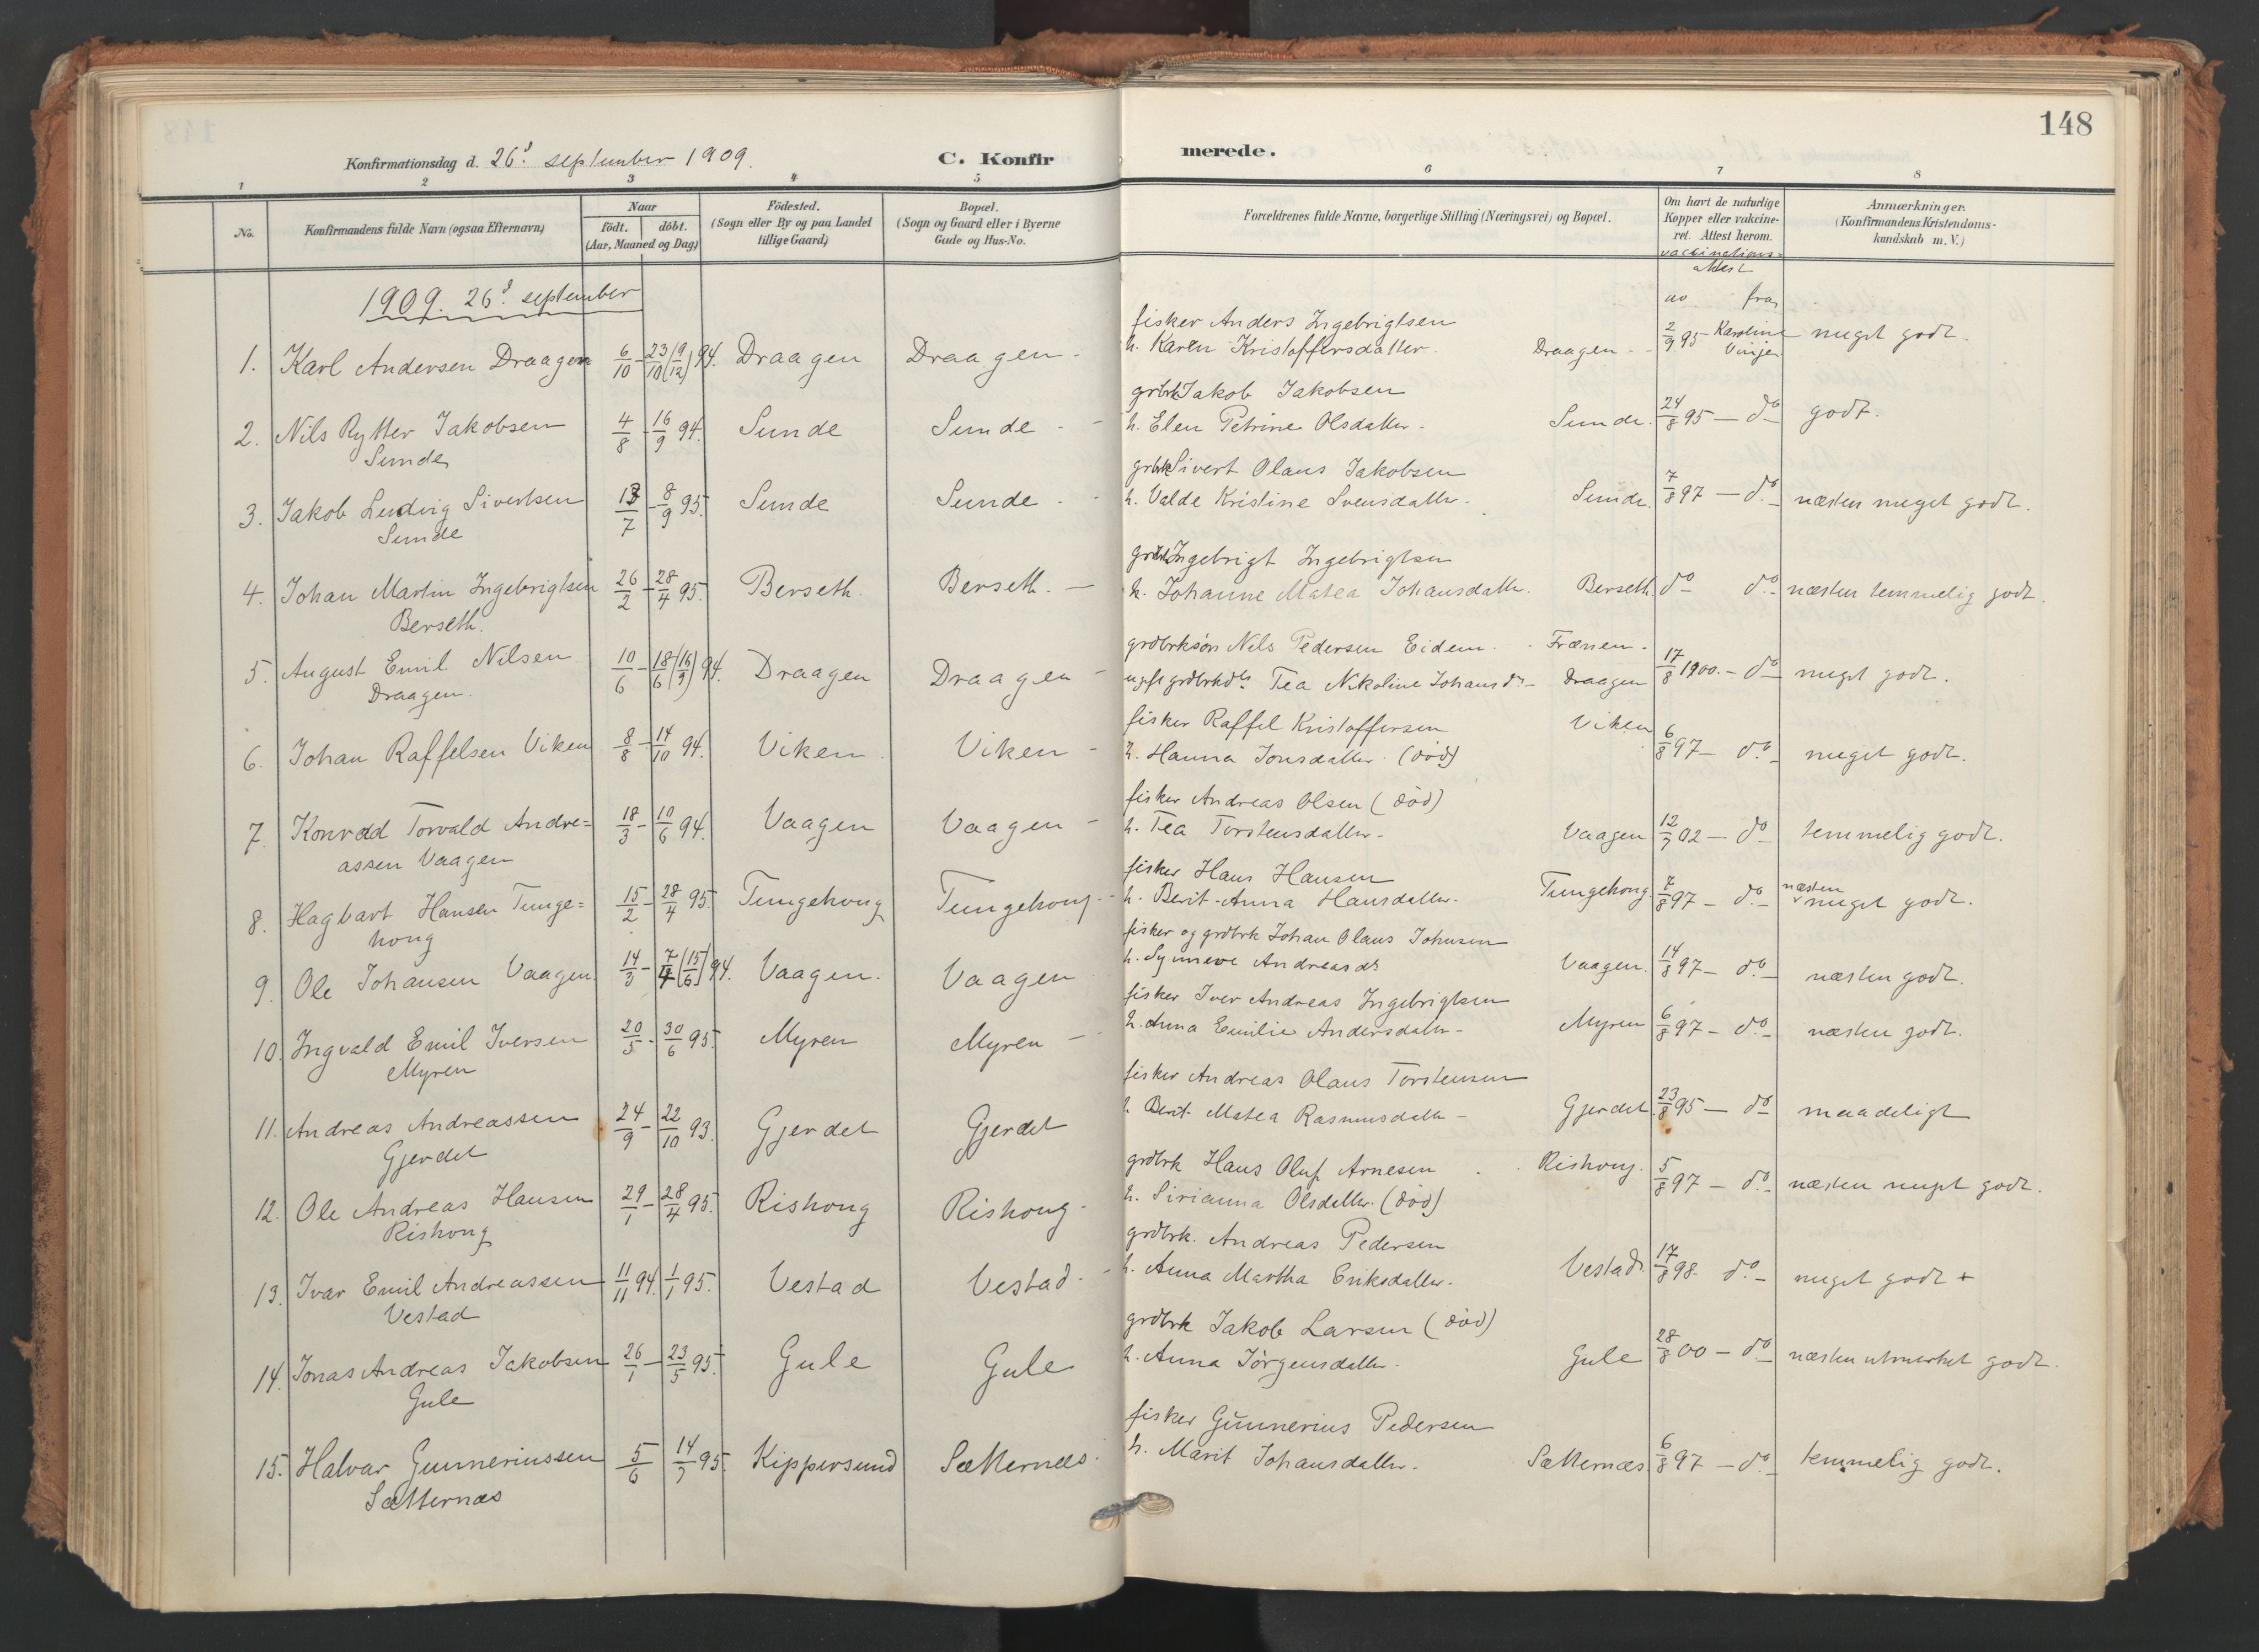 148
Konfirmationsdag d. 26d september 1909. C. Konfirmerede.
1 2 3 4 5 6 7 8
No. Konfirmandens fulde Navn (ogsaa Efternavn) Naar födt. döbt. (Aar, Maaned og Dag) Födested. (Sogn eller By og paa Landet tillige Gaard) Bopæl. (Sogn og Gaard eller i Byerne Gade og Hus-No. Forældrenes fulde Navne, borgerlige Stilling (Næringsvei) og Bopæl. Om havt de naturlige Kopper eller vaccineret. Attest herom. Anmærkninger. (Konfirmandens Kristendomskundskab m. V.)
vaccinations=
attest
av fra
1909. 26d september
fisker Anders Ingebrigtsen
1. Karl Andersen Draagen 6/10 - 23/10 (9/12) 94. Draagen Draagen - h. Karen Kristoffersdatter. Draagen - 2/9 95 - Karoline Vinje meget godt.
grbrk Jakob Jakobsen
2. Nils Rytter Jakobsen 4/8 - 16/9 94. Sunde Sunde - h. Elen Petrine Olsdatter - Sunde. 24/8 95 - do godt.
Sunde
grbrk Sivert Olaus Jakobsen
3. Jakob Ludvig Sivertsen 13/7 - 8/9 95. Sunde Sunde - h. Valde Kristine Svensdatter - Sunde. 7/8 97 - do næsten meget godt.
Sunde
Ingebrigt Ingebrigtsen
4. Johan Martin Ingebrigtsen 26/2 - 28/4 95. Berseth. Berseth. - h. Johanne Matea Johansdatter. Berseth. do do næsten temmelig godt.
Berseth.
grdbrksøn Nils Pedersen Eidem - Frænen -
5. August Emil Nilsen 10/6 - 18/6 (16/9) 94. Draagen Draagen - ugft grdbrkds Tea Nikoline Johansdr - Draagen 17/8 1900. - do meget godt.
Draagen.
fisker Raffel Kristoffersen Viken
6. Johan Raffelsen Viken 8/8 - 14/10 94. Viken. Viken - h. Hanna Jonsdatter. (död) 6/8 97 - do meget godt.
fisker Andreas Olsen (död)
7. Konrad Torvald Andre= 18/3 - 10/6 94. Vaagen Vaagen - h. Tea Torstensdatter - Vaagen 12/7 02 - do temmelig godt.
assen Vaagen
fisker Hans Hansen
8. Hagbart Hansen Tunge= 15/2 - 28/4 95. Tungehoug Tungehoug - h. Berit-Anna Hansdatter - Tungehoug. 7/8 97 - do næsten meget godt.
houg
fisker og grdbrk Johan Olaus Johnsen
9. Ole Johansen Vaagen. 14/3 - 7/4 (15/6) 94. Vaagen. Vaagen h. Synneve Andreasdr Vaagen. 14/8 97 - do næsten godt.
fisker Iver Andreas Ingebrigtsen
10. Ingvald Emil Iversen 20/5 - 30/6 95. Myren Myren - h. Anna Emilie Andersdatter - Myren 6/8 97 - do næsten godt.
Myren
fisker Andreas Olaus Torstensen
11. Andreas Andreassen 24/9 - 22/10 93. Gjerdet Gjerdet h Berit Matea Rasmusdatter - Gjerdet. 23/8 95 - do maadeligt
Gjerdet
grdbrk Hans Oluf Arnesen - Rishoug.
12. Ole Andreas Hansen 29/1 - 28/4 95. Rishoug Rishoug - h. Sirianna Olsdatter. (död) 5/8 97 - do næsten meget godt.
Rishoug
grdbrk. Andreas Pedersen
13. Ivar Emil Andreassen 11/11 94. 1/1 95. Vestad Vestad - h. Anna Martha Eriksdatter. Vestad. 17/8 98. do meget godt +
Vestad
grdbrk Jakob Larsen (död)
14. Jonas Andreas Jakobsen 26/1 - 23/5 95. Gule Gule h. Anna Jörgensdatter. Gule 28/8 00 - do næsten utmerket godt.
Gule
fisker Gunnerius Pedersen
15. Halvar Gunneriussen 5/6 14/7 95. Kippersund Sætternæs. h. Marit Johansdatter. Sætternæs. 6/8 97 - do temmelig godt.
Sætternæs